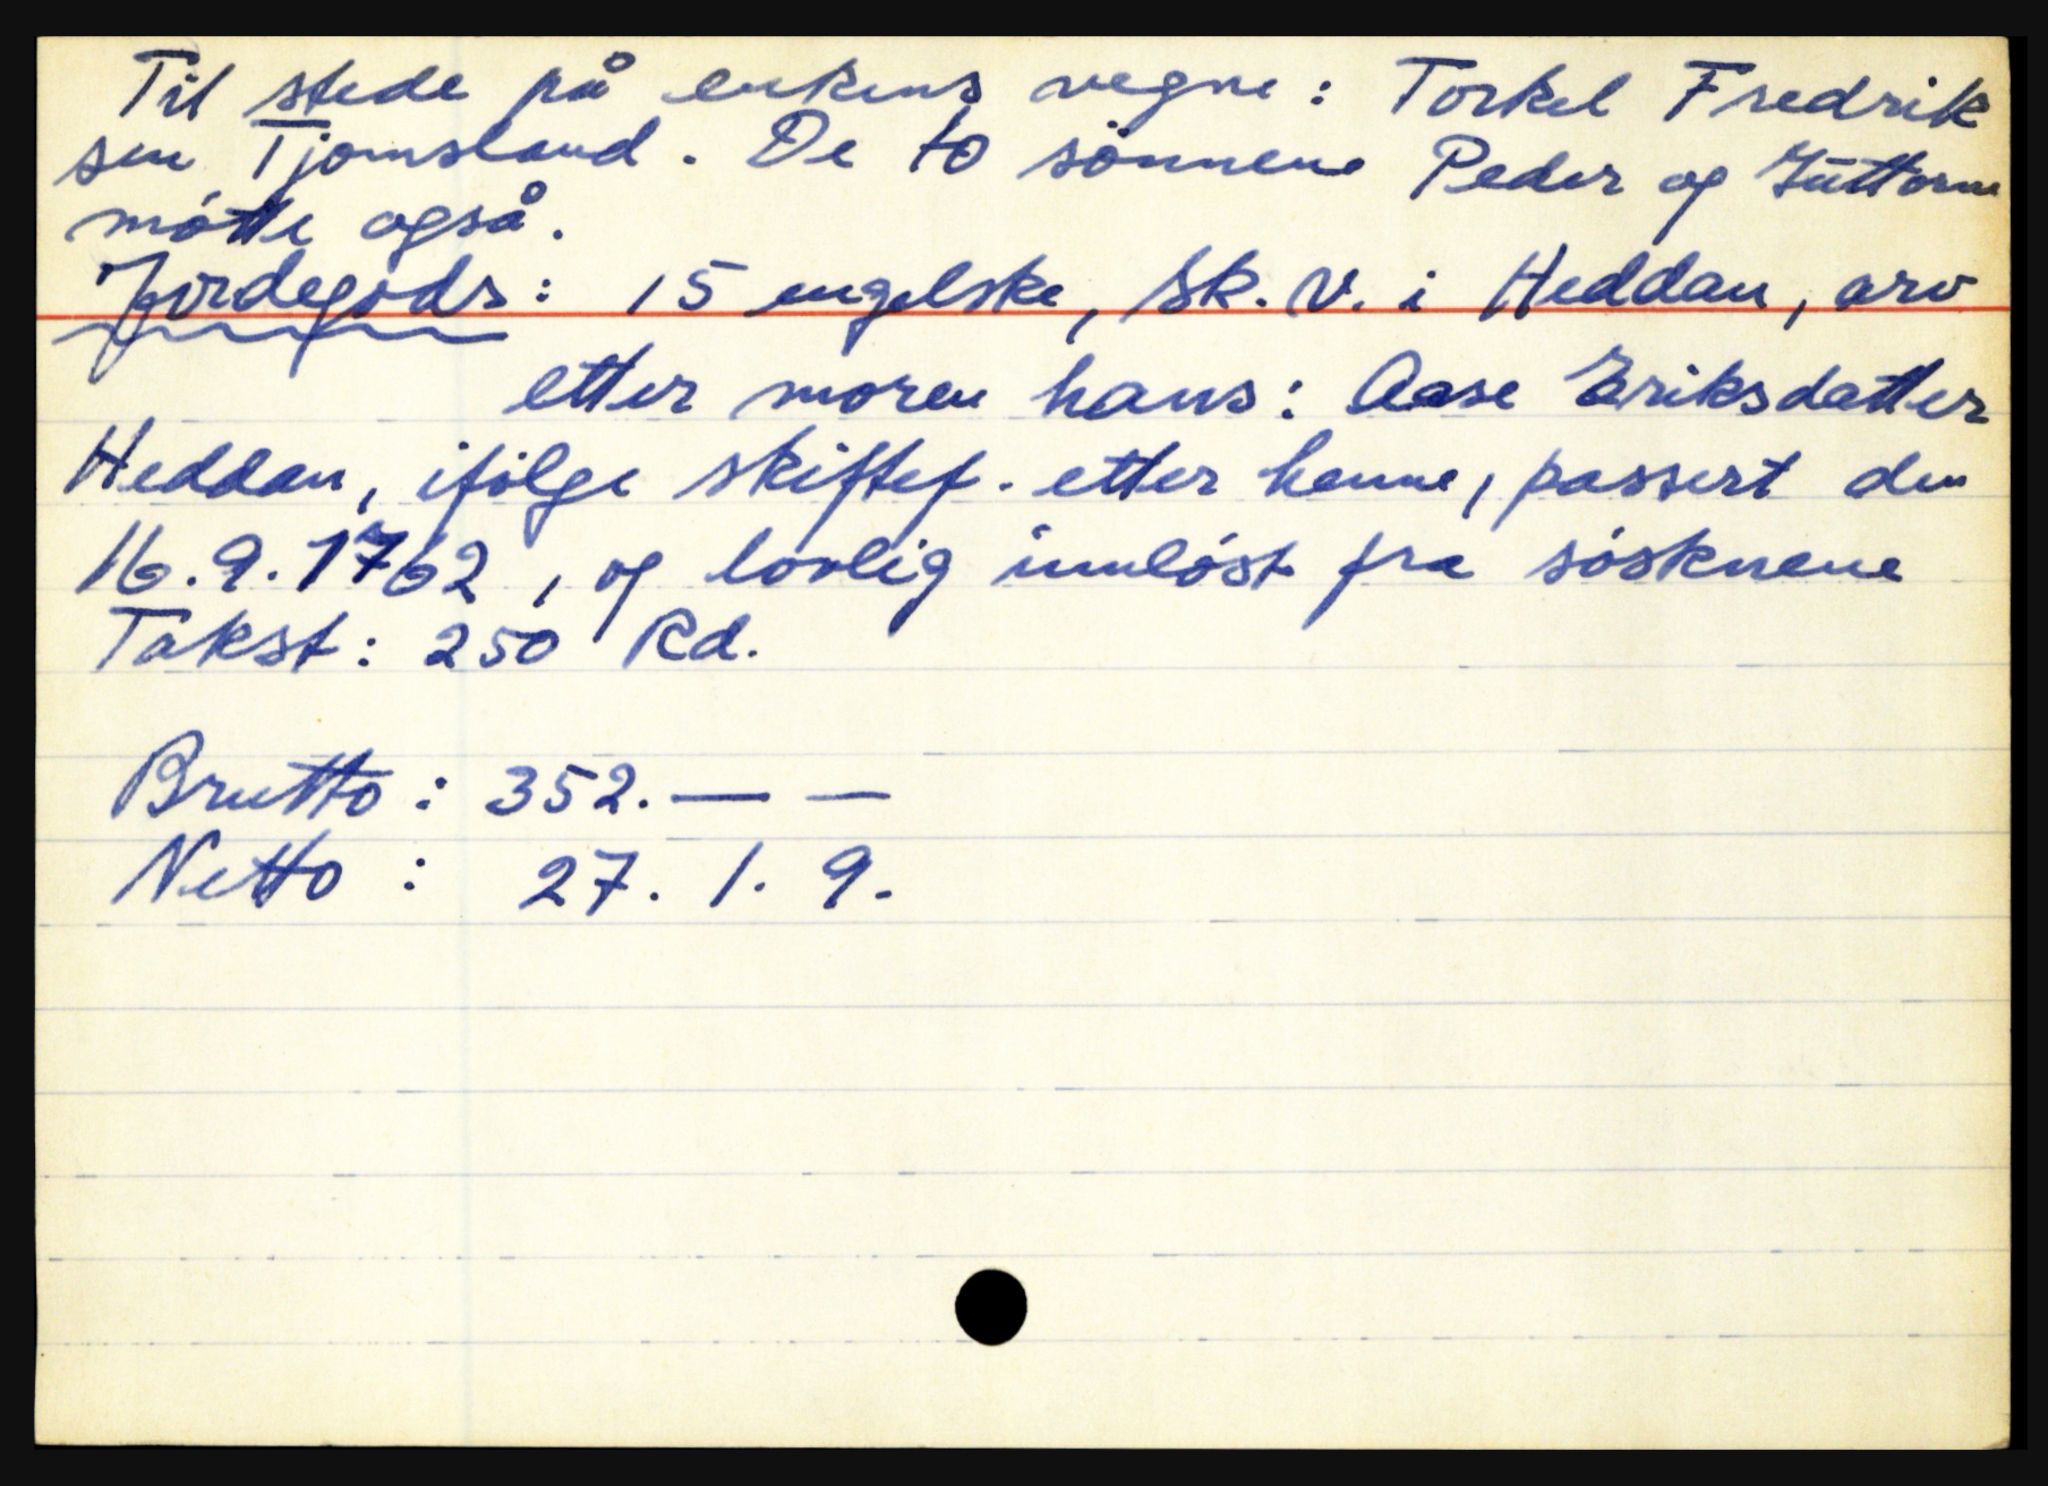 Til stede på enkens vegne: Torkel Fredrik
sen Tjomsland. De to sønnene Peder og Guttorm
møtte også.
Jordegods: 15 engelske, sk. V. i Heddan, arv
etter moren hans: Aase Eriksdatter
Heddan, ifølge skiftef. etter henne, passert den
16.9.1762, og lovlig innløst fra søsknene
Takst: 250 Rd.
Brutto: 352. — —
Netto : 27. 1. 9.